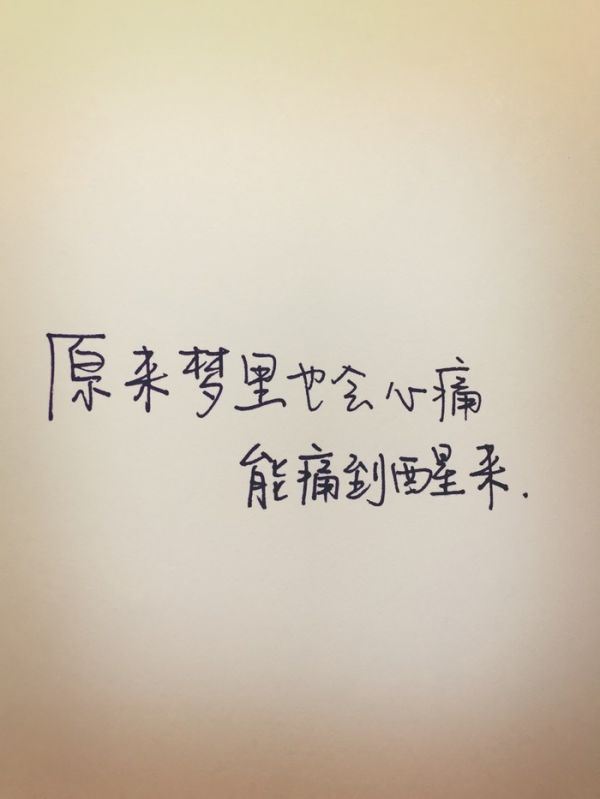 原来梦里也会心痛
能痛到醒来.